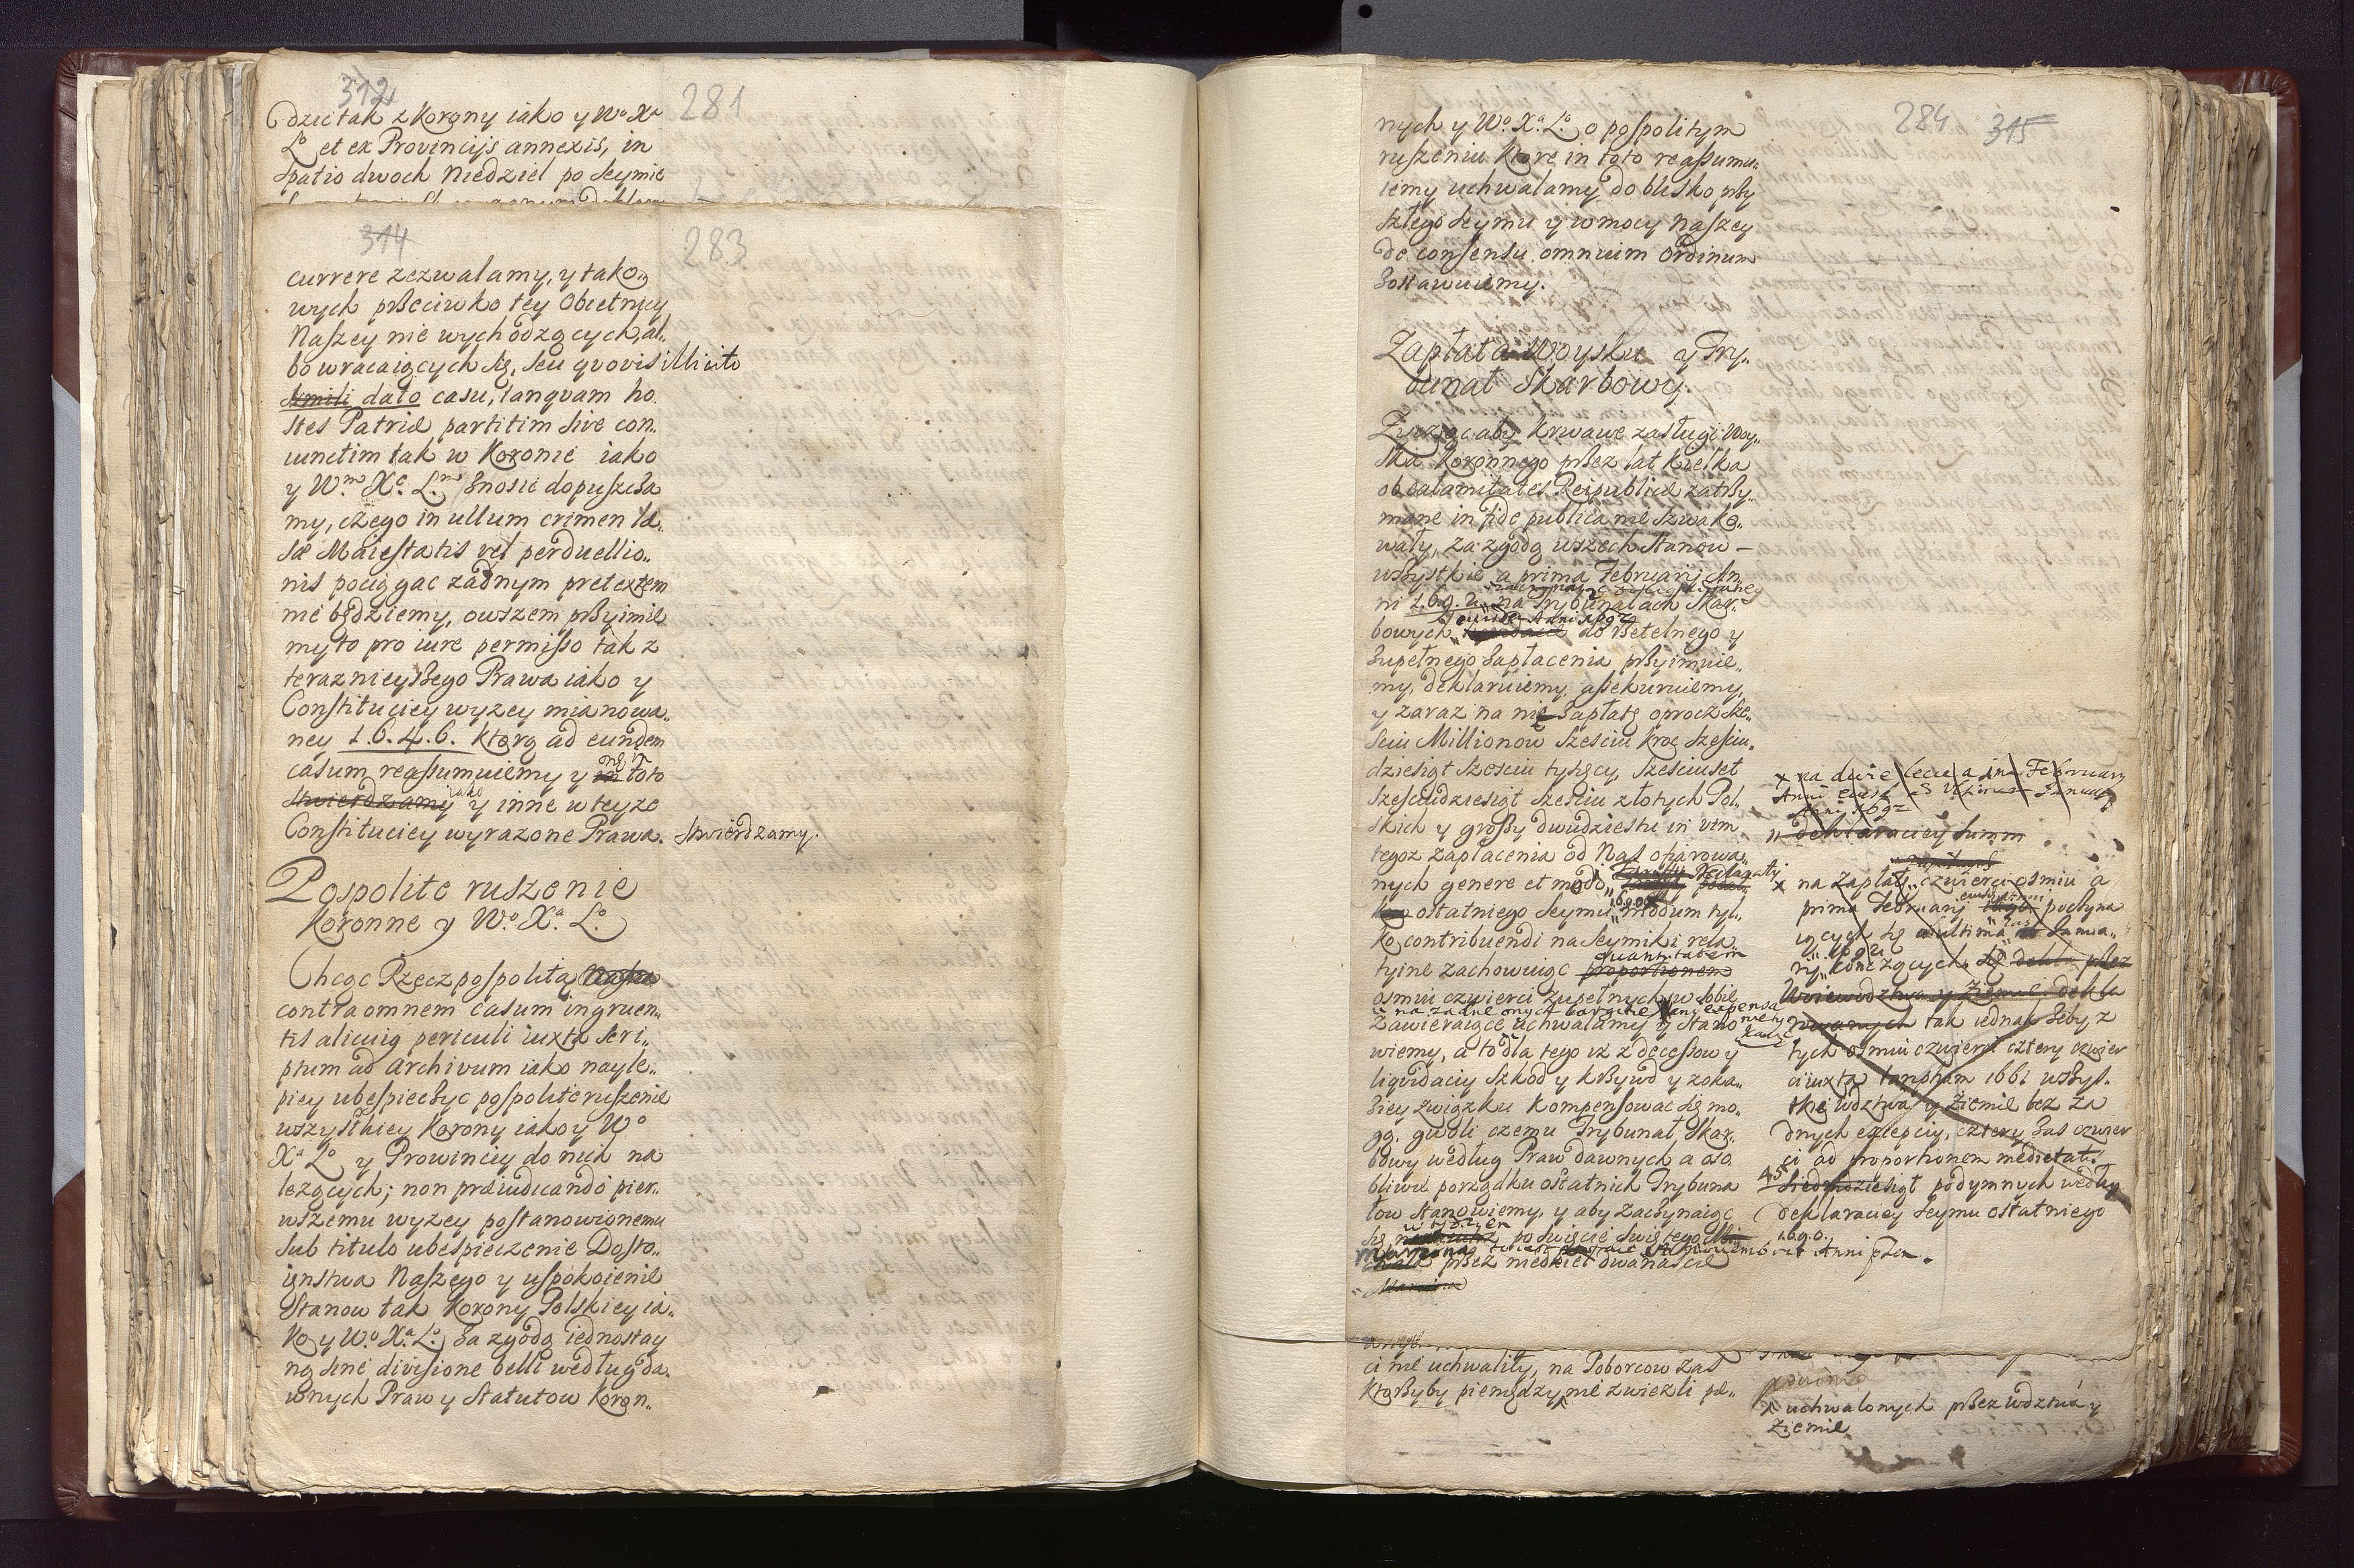 312
281
dzie tak z Korony iako y Wo Xa
Lo et ex Provincijs annexis, in
Spatio dwoch Niedziel po Seymie
314
283
currere zezwalamy, y tako„
wych przeciwko tey Obietnicy
Naszey nie wychodzących, al„
bo wracaiących się, seu quovis illicito
simili dato casu, tanquam ho„
stes Patriæ partitim sive con„
iunctim tak w Koronie iako
y Wm Xe Lm Znosić dopuszcza
my, czego in ullum crimen læ„
sæ Maiestatis vel perduellio„
nis pociągac zadnym pretextem
nie będziemy, owszem przyimie
my to pro iure permisso tak z
teraznieyszego Prawa iako y
Constituciey wyzey mianowa„
ney 1.6.4.6. ktorą ad eundem
casum reassumuiemy y in toto
stwierdzamy iako y inne w teyze
Constituciey wyrazone Prawa. stwierdzamy.
Pospolite ruszenie
Koronne y Wo. Xa. Lo.
Chcąc Rzeczpospolitą Naszę
contra omnem casum ingruen„
tis alicuius periculi iuxta scri„
ptum ad Archivum iako nayle„
piey ubespieczyc pospolite ruszenie
wszystkiey Korony iako y Wo
Xa Lo y Prowinciey do nich na
lezących; non præiudicando pier„
wszemu wyzey postanowionemu
sub titulo ubespieczenie Dosto„
ienstwa Naszego y uspokoienie
Stanow tak Korony Polskiey ia„
ko y Wo. Xa. Lo. Za zgodą iednostay
ną sine divisione belli według da„
wnych Praw y Statutow Koron„
284 315
nych y Wo. Xa. Lo. o pospolitym
ruszeniu ktore in toto reassumu„
iemy uchwalamy do blisko przy
szłego Seymu y w mocy Naszey
de consensu omnium Ordinum
Zostawuiemy.
Zapłata Woysku y Try„
bunał Skarbowy.
Zycząc aby krwawe zasługi Woy„
ska Koronnego przez lat kielka
ob calamitates Reipublicæ zatrzy„
mane in fide publica nie szwako„
wały, za zgodą wszech Stanow –
wszystkie a prima Februarij An„
ni 1.6.9. na Trybunałach Skar„
bowych do rzetelnego y
Zupełnego Zapłacenia przyimuie„
my, deklaruiemy, assekuruiemy,
y zaraz na nie Zapłatę oprocz sze„
sciu Millionow szesciu kroc szesciu„
dziesiąt szesciu tysięcy, szesciuset
szescudziesiąt szesciu złotych Pol„
skich y groszy dwudziestu in vim
tegoz zapłacenia od Nas ofiarowa„
nych genere et modo
ostatniego Seymu 1690 modum tyl„
ko contribuendi na Seymiki rela„
tyine zachowuiąc quantitatem proportionem
osmiu czwierci zupełnych w sobie
Zawieraiące uchwalamy y stano
wiemy, a to dla tego iz z decessow y
liqvidaciy szkod y krzywd y z oka„
Ziey związku kompensowac się mo„
gą, gwoli czemu Trybunał Skar„
bowy według Praw dawnych a oso
bliwie porządku ostatnich Trybuna
łow stanowiemy, y aby zaczynaiąc
się w tydzien po swięcie swiętego
Marcina
przez niedziel dwanascie
Marcina
ci nie uchwaliły, na Poborcow zas
ktorzyby pieniędzy nie zwiezli pœ„
x na dwie lecie a ima February
Anni 1692
deklaraciey summ
x na zapłatę czwierci osmiu a
prima Februarij poczyna
iących się a ultima Ianua„
rij konczących się dekla przez
Woiewodztwa y Ziemie, dekla
rowanych tak iednak zeby z
tych osmiu czwierci cztery czwier
ci iuxta tariffam 1661 wszys„
tkie wdztwa y Ziemie bez za
dnych exlepciy, cztery zas czwier
ci ad proportionem medietat.
45 siedmdziesiąt podymnych według
deklaraciey Seymu ostatniego
1690.
x uchwalonych przez wdztwa y
Ziemie